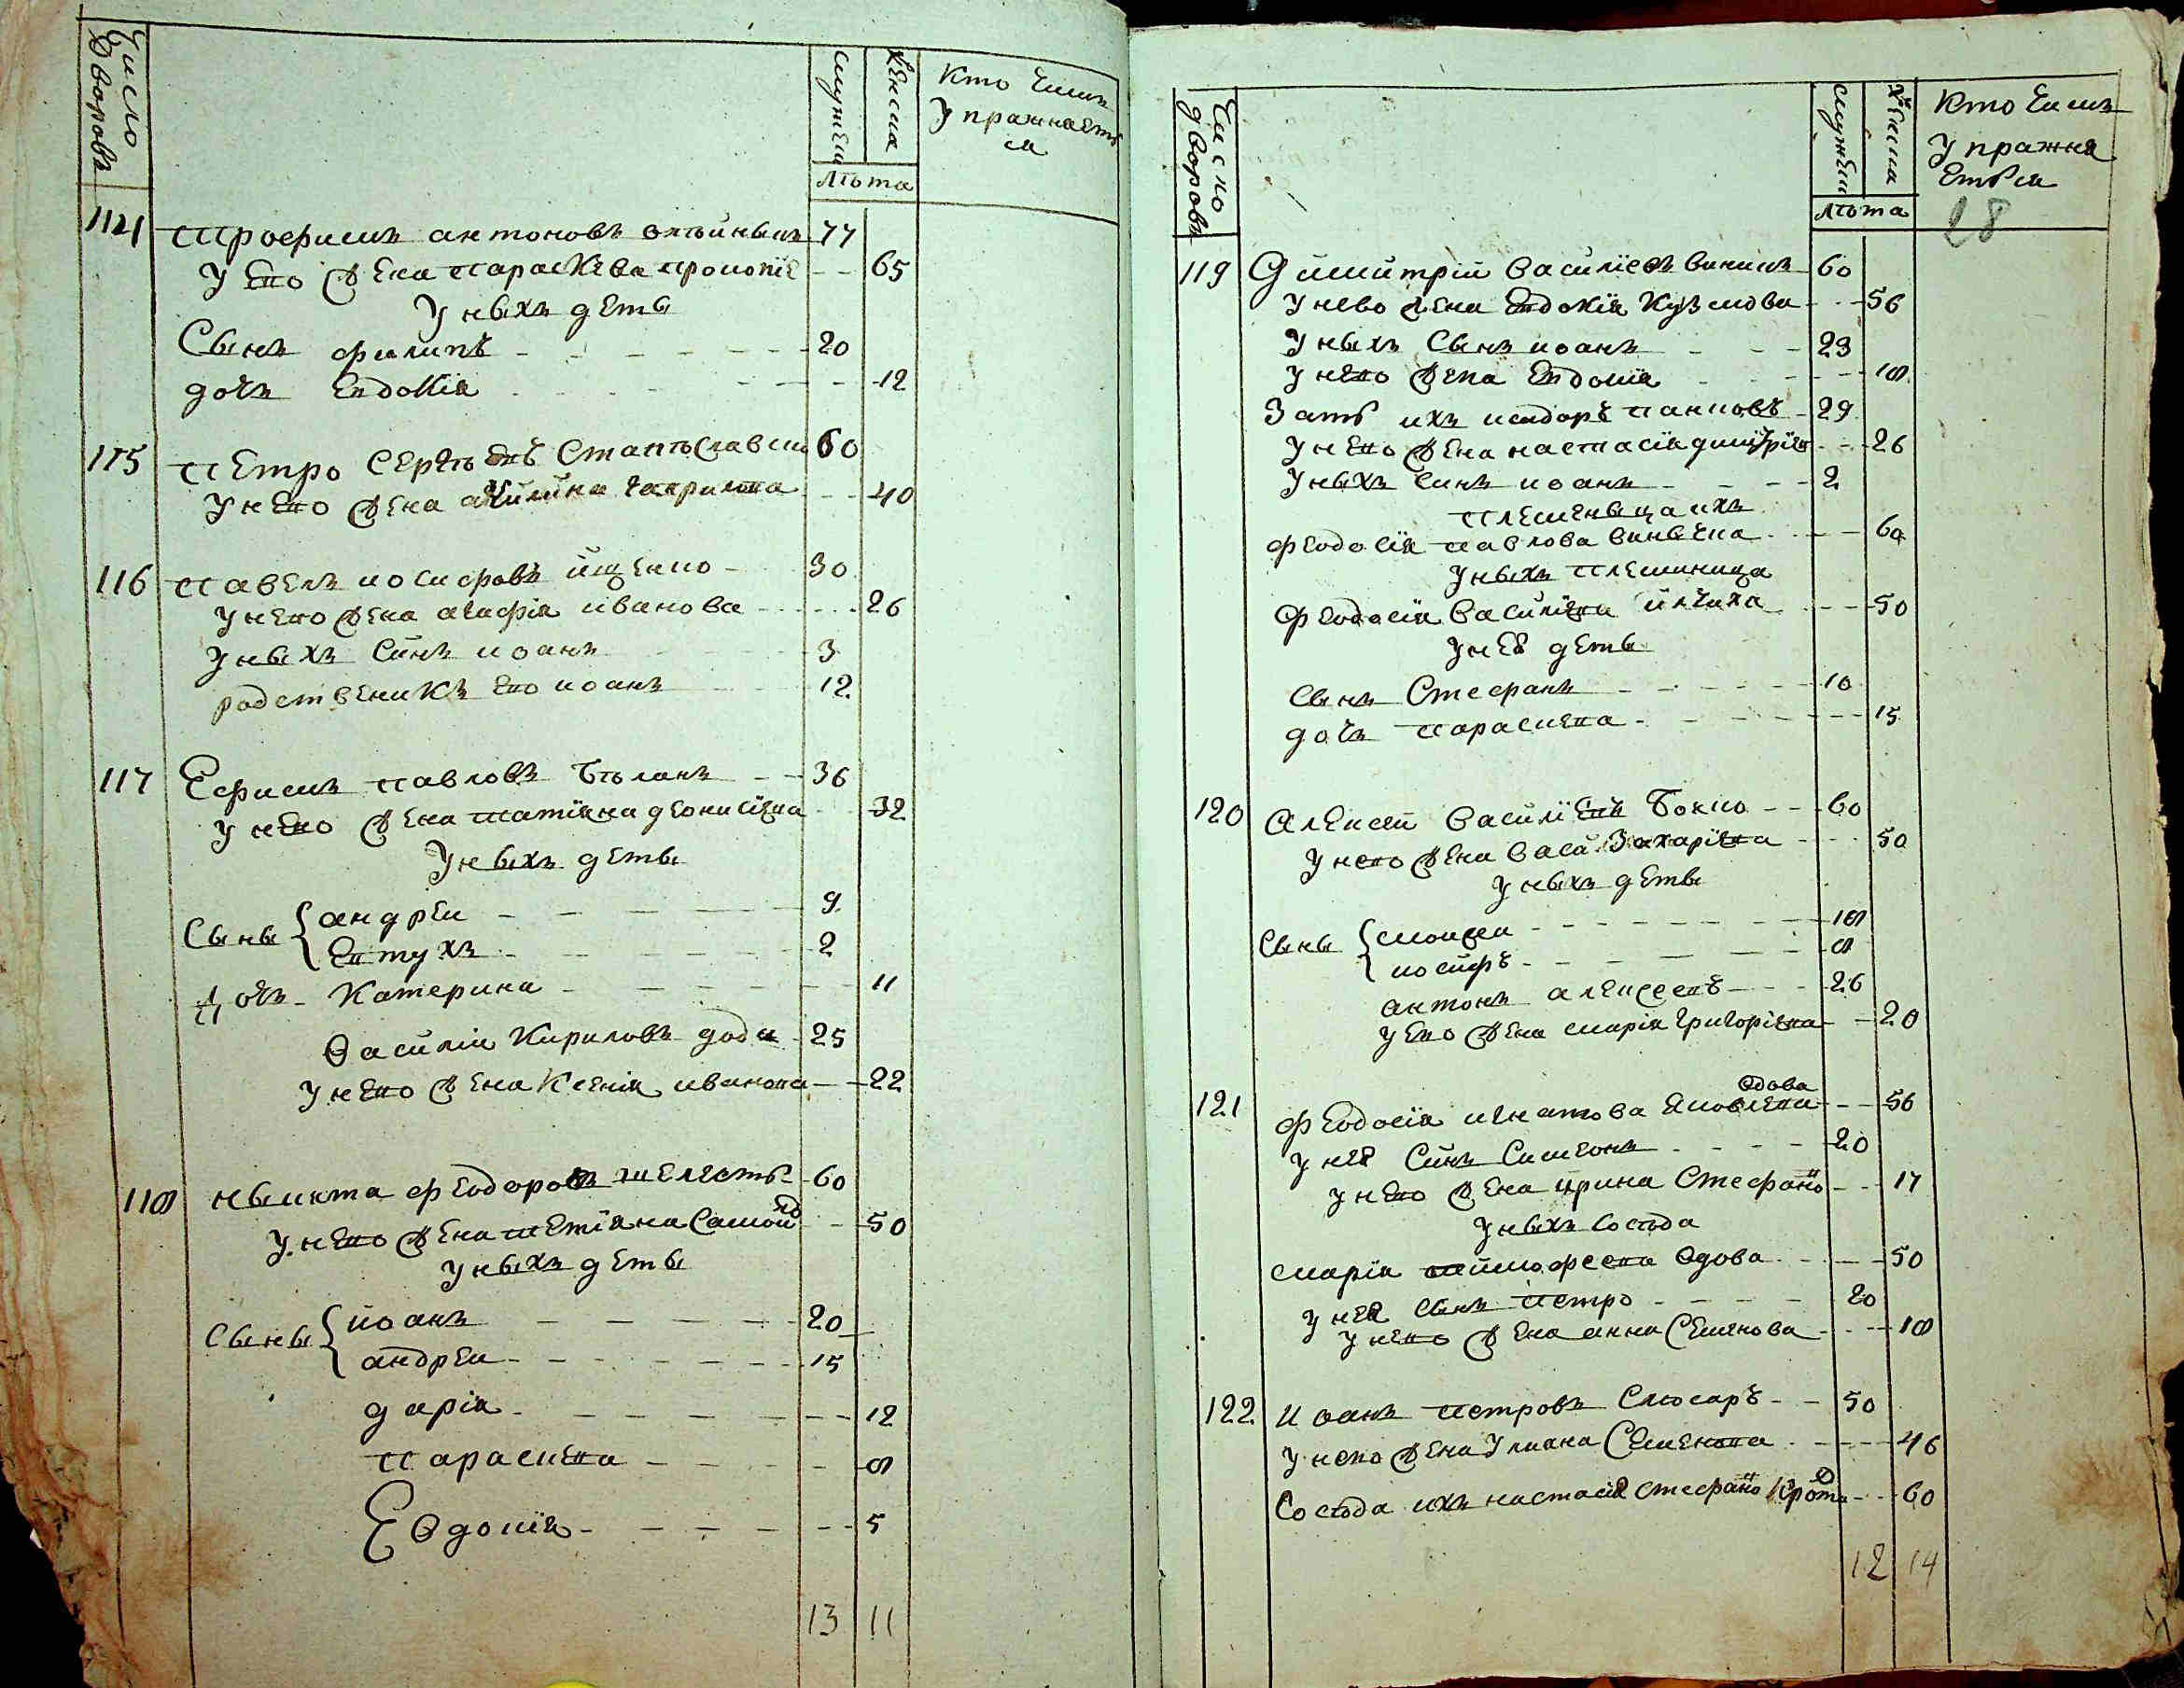 Число дворовъ
мужеск
женска
лѣта
Кто чимъ
упражнаеть
ся
114 Трофимъ антоновъ 77
У его жена Параскева Прокопіе 65
У ныхъ деты
Сынъ филипъ 20
дочъ Евдокія 12
115 Петро Сергѣевъ 60
У него жена акилина гаврилова 40
116 Павелъ иосифовъ ищенко 30
У него жена агафія иванова 26
У ныхъ синъ иоанъ 3
родственикъ его иоанъ 12
117 Ефимъ Павловъ Бѣланъ 36
У него жена Татіяна деонисіева 32
У ныхъ деты
Сыны андреи 9
Евтухъ 2
Дочъ Катерина 11
Василіи Кириловъ 25
У него жена Ксенія иванова 22
118 Ныкита феодоровъ шелесть 60
У него жена Тетіяна Самоило 50
У ныхъ деты
Сыны иоанъ 20
андреи 15
дарія 12
Параскева 8
Евдокія 5
13 11
Число дворовъ
мужеск
женска
лѣта
Кто чимъ
упражня
еться
28
119 Димитрій Василіевъ 60
У нево жена Евдокія Кузмова 56
У ныхъ Сынъ иоанъ 23
У него жена Евдокія 18
Зать ихъ исидоръ Панковъ 29
У него жена настасія дмитрія 26
У ныхъ синъ иоанъ 2
Племеныца ихъ
феодосія Павлова 60
У ныхъ племиница
феодосія Василіева 50
У неѣ деты
Сынъ Стефанъ 10
дочъ Параскева 15
120 Алексей Василіевъ Бокло 60
У него жена Васа Захаріева 50
У ныхъ деты
Сыны моисеи 18
иосифъ 8
антонъ алексеевъ 26
У его жена марія григоріева 20
121 феодосія игнатова Яковлева вдова 56
У неѣ Синъ Симеонъ 20
У него жена ирина Стефано 17
У ныхъ Сосѣда
марія тимофеева вдова 50
У нея Сынъ Петро 20
У него жена анна Семенова 18
122 Иоанъ Петровъ Слюсаръ 50
У него жена Улиана Семенова 46
Сосѣда ихъ настасія стефано 60
12 14